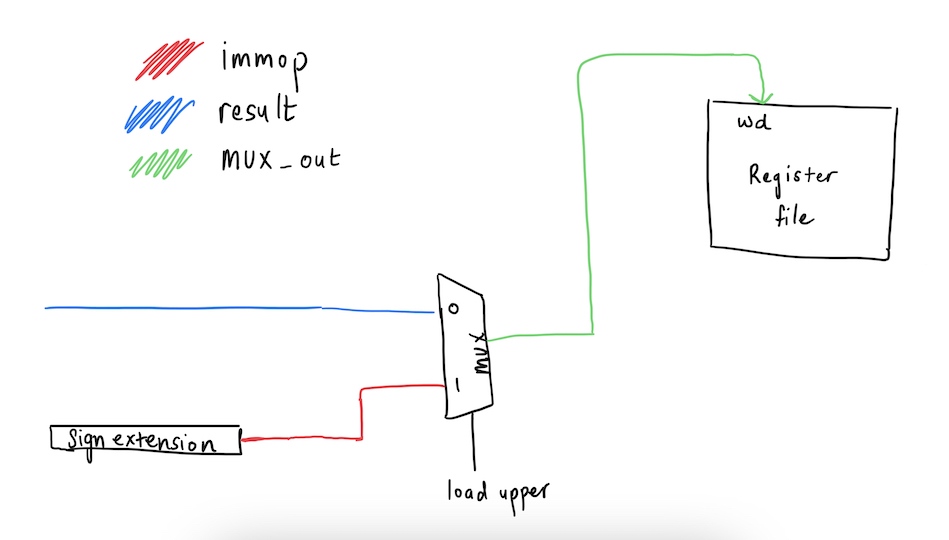 immop
result
MUX_out
wd
Register
file
0
MUX
1
sign extension
load upper